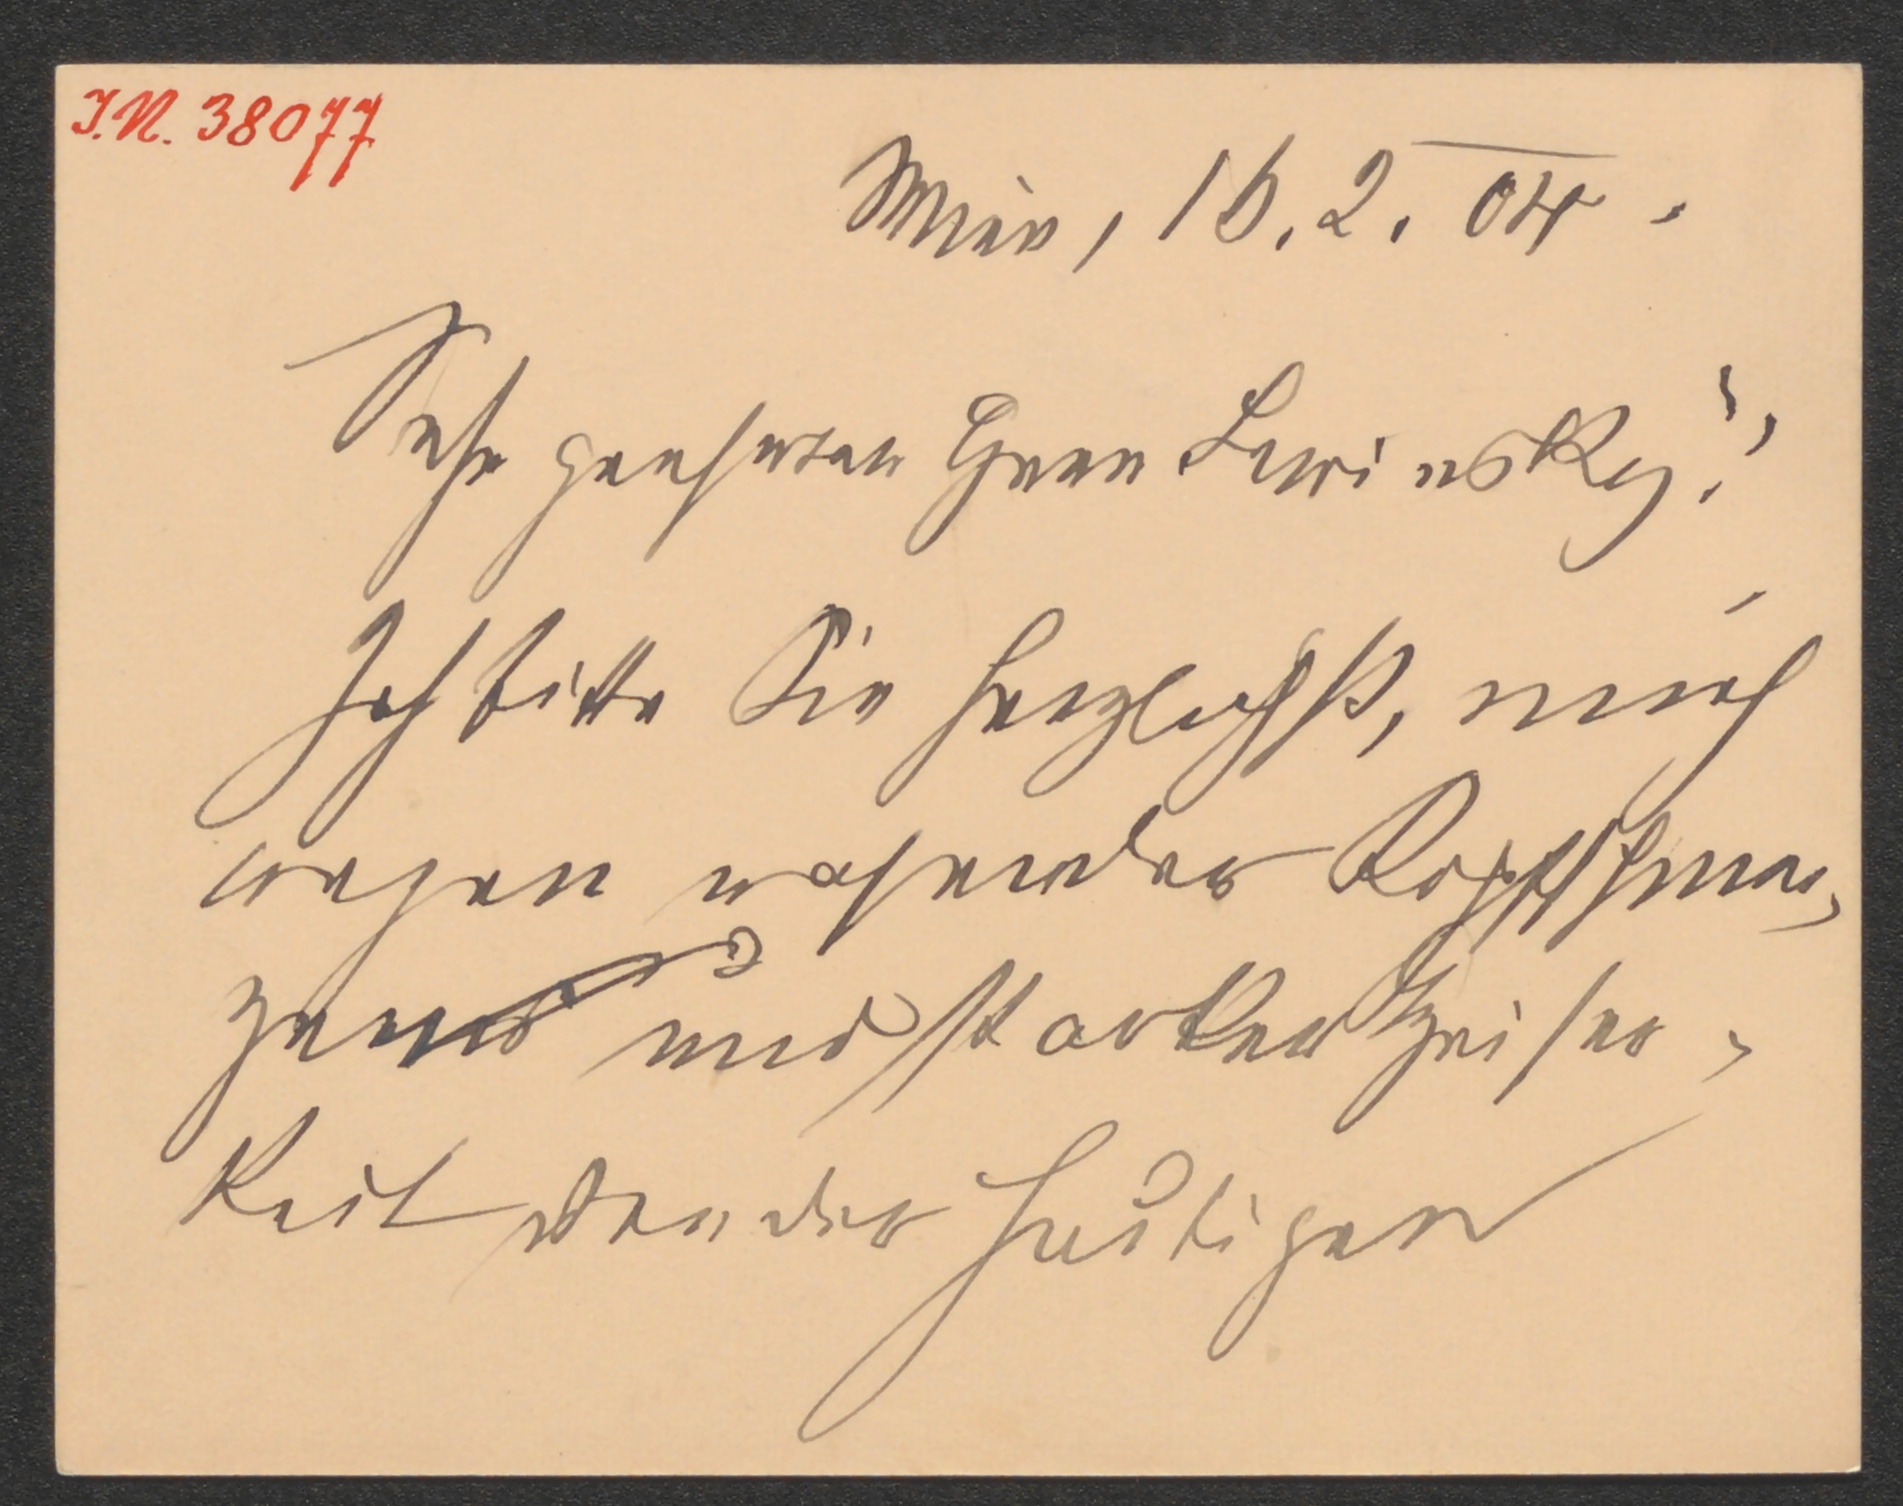 I.N. 38077
Wien, 16.2.04.
Sehr geehrter Herr Lewinsky!
Ich bitte Sie herzlichst, mich
wegen rasender Kopfschmer,
zen und starker Heiser,
keit von der heutigen